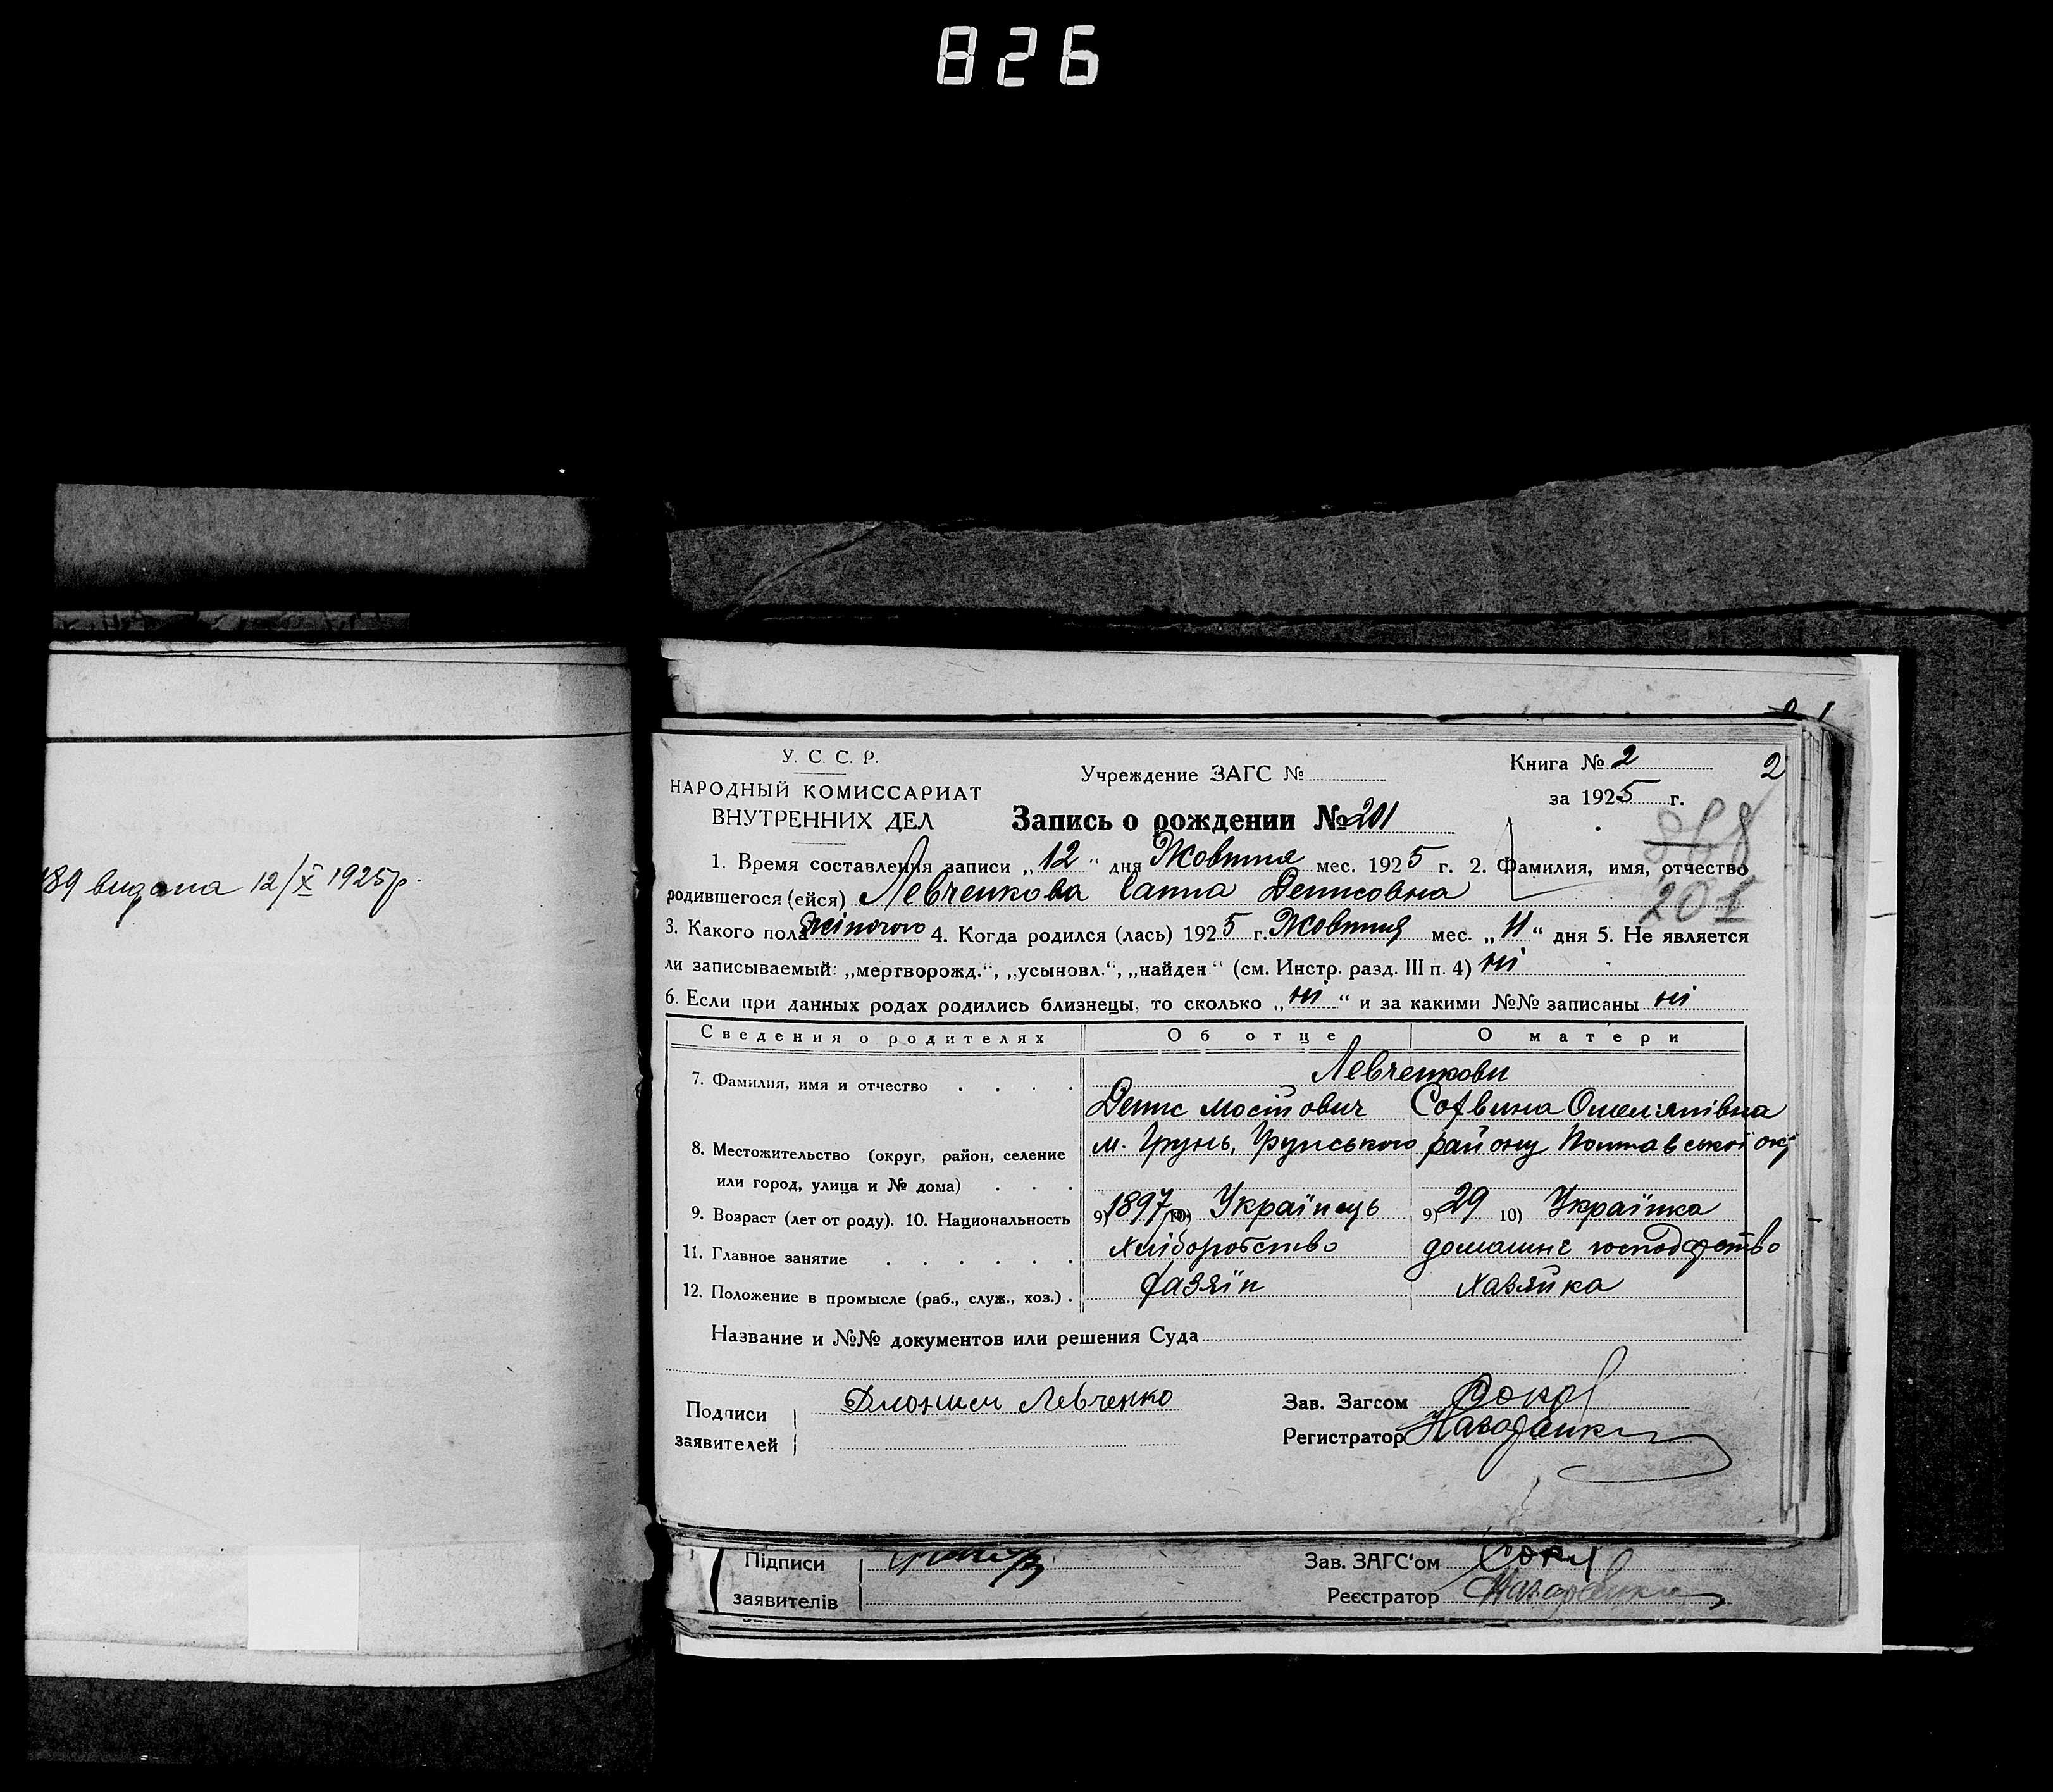 826
189 видана 12/X 1925 р.
У. С. С. Р.
НАРОДНЫЙ КОМИССАРИАТ
ВНУТРЕННИХ ДЕЛ
Учреждение ЗАГС №
Книга № 2
2
за 1925 г.
Запись о рождении № 201
1. Время составления записи „12“ дня Жовтня мес. 1925 г. 2. Фамилия, имя, отчество
родившегося (ейся) Левченкова Ганна Денисовна
201
3. Какого пола жіночого 4. Когда родился (лась) 1925 г. Жовтня мес. „11“ дня 5. Не является
ли записываемый: „мертворожд.“, „усыновл.“, „найден“ (см. Инстр. разд. III п. 4) ні
6. Если при данных родах родились близнецы, то сколько „ні“ и за какими №№ записаны ні
Сведения о родителях Об отце О матери
7. Фамилия, имя и отчество . . . . Левченкови
Денис Омельянівна
8. Местожительство (округ, район, селение м. Грунь, Грунського району Полтавської окр
или город, улица и № дома) . . .
9. Возраст (лет от роду). 10. Национальность 9) 1897 р. 10) Українець 9) 29 10) Українка
11. Главное занятие . . . . . . Хліборобство домашнє господарство
12. Положение в промысле (раб., служ., хоз.) . хазяїн хазяйка
Название и №№ документов или решения Суда
Подписи заявителей Левченко
Зав. Загсом
Регистратор
Підписи
заявителів
Зав. ЗАГС'ом
Реєстратор